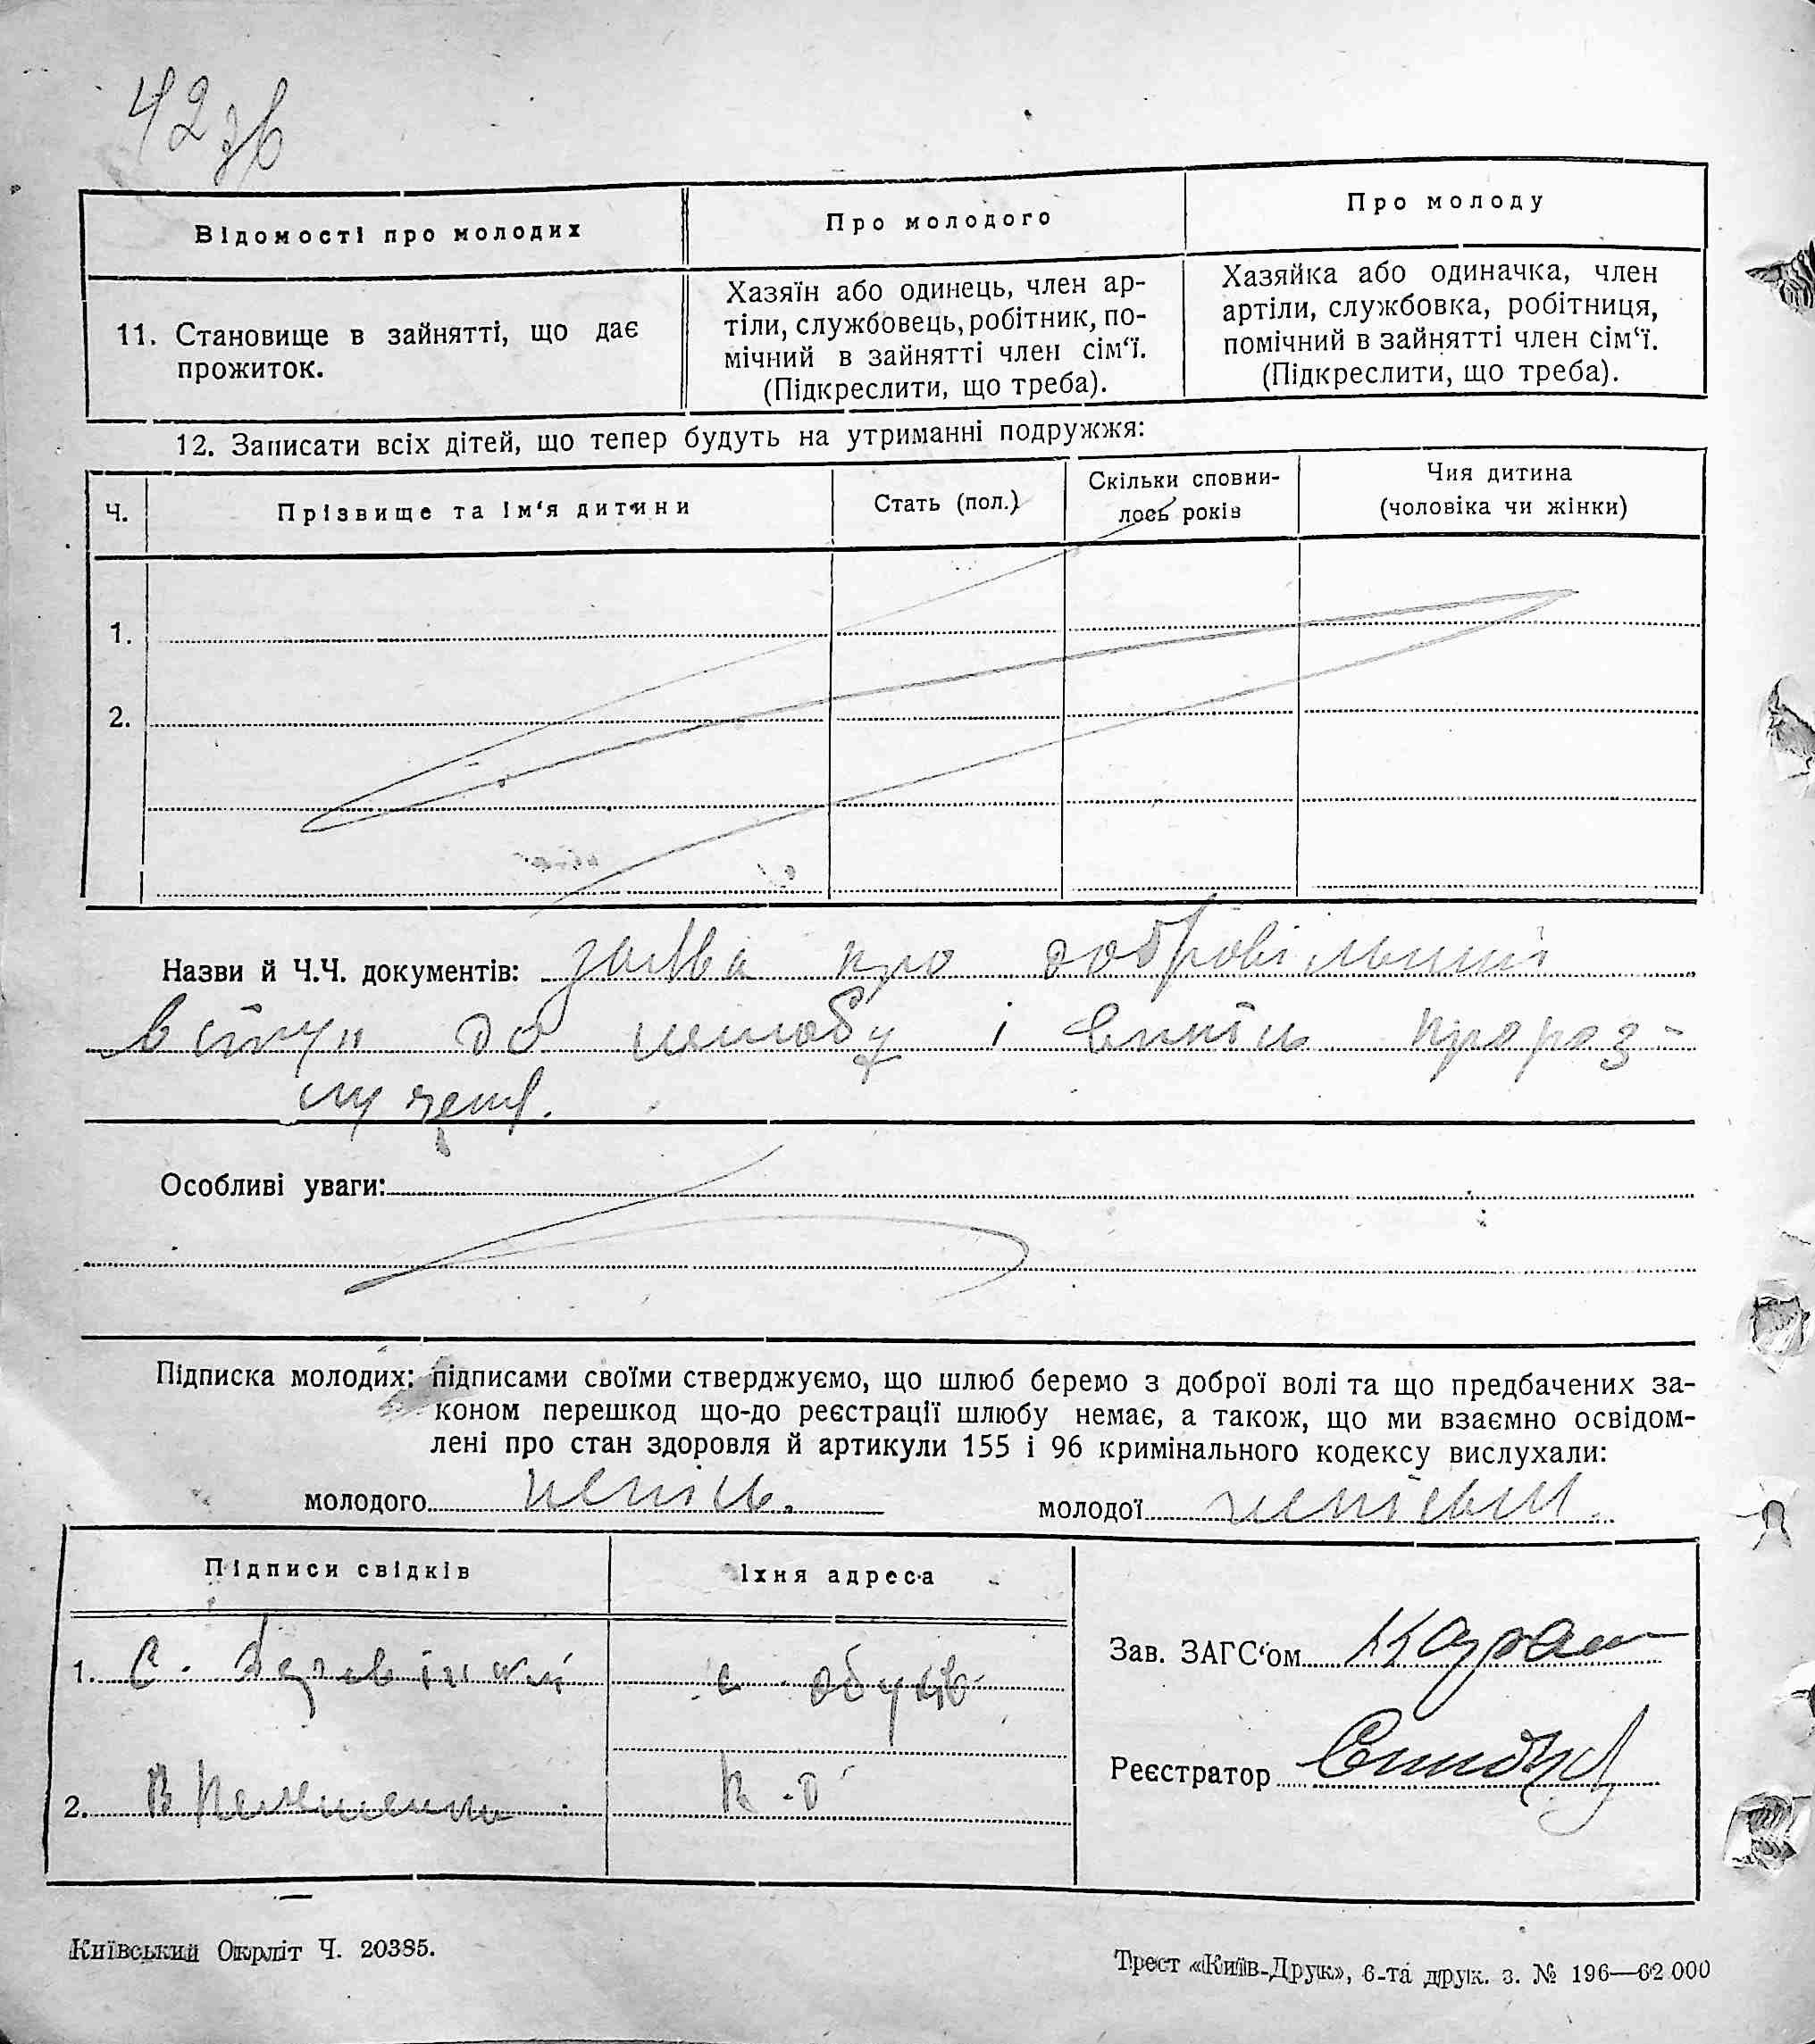 42 зв
Відомості про молодих
Про молодого
Про молоду
11. Становище в зайнятті, що дає
прожиток.
Хазяїн або одинець, член ар-
тіли, службовець, робітник, по-
мічний в зайнятті член сім‘ї.
(Підкреслити, що треба).
Хазяйка або одиначка, член
артіли, службовка, робітниця,
помічний в зайнятті член сім‘ї.
(Підкреслити, що треба).
12. Записати всіх дітей, що тепер будуть на утриманні подружжя:
Ч.
Прізвище та ім‘я дитини
Стать (пол.)
Скільки сповни-
лось років
Чия дитина
(чоловіка чи жінки)
1.
2.
Назви й Ч.Ч. документів: заява про добровільний
вступ до шлюбу і про роз-
Особливі уваги:
Підписка молодих: підписами своїми стверджуємо, що шлюб беремо з доброї волі та що предбачених за-
коном перешкод що-до реєстрації шлюбу немає, а також, що ми взаємно освідом-
лені про стан здоровля й артикули 155 і 96 кримінального кодексу вислухали:
молодого
молодої
Підписи свідків
Їхня адреса
1. С.
2. В
Зав. ЗАГС‘ом
Реєстратор
Київський Окрліт Ч. 20385.
Трест «Київ-Друк», 6-та друк. з. № 196—62.000